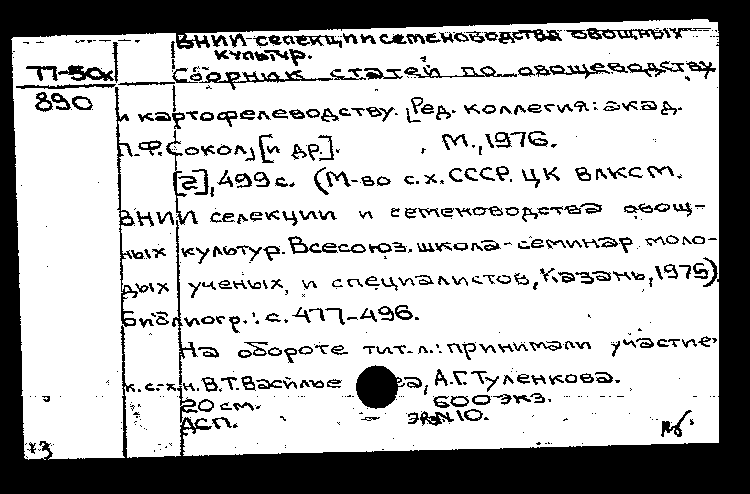 ВНИИ селекции и семеноводства овощных
культур.
77-50к
Сборник статей по овощеводству
890
и картофелеводству. [Ред. коллегия: акад.
П.Ф. Сокол, [и др]. , М., 1976.
[2], 499 с. (М-во с.х. СССР. ЦК ВЛКСМ.
ВНИИ селекции и семеноводства овощ-
ных культур. Всесоюз. школа-семинар моло-
дых ученых, и специалистов, Казань, 1975).
Библиогр.: с. 477-496.
На обороте тит. л.: принимали участие
к.с-х.н. В.Т. Василье ва, А.Г. Туленкова.
20 см. 600 экз.
ДСП. Экз N 10.